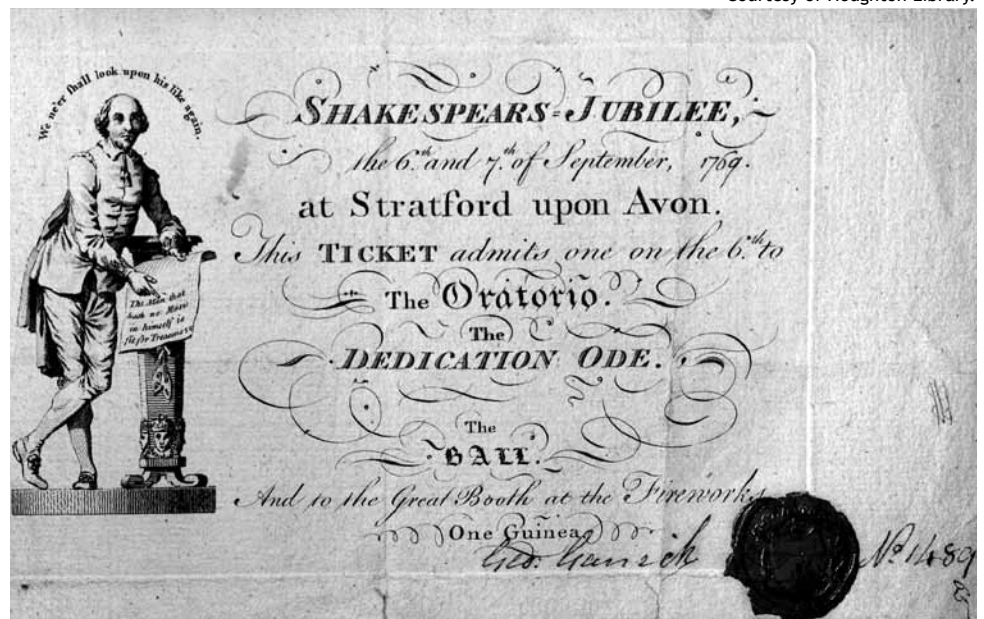 Courtesy of Houghton Library.
We ne'er ſhall look upon his like again.
The Man that
hath no Music
in himself is
fit for Treasons
SHAKESPEARS=JUBILEE,
the 6.th and 7.th of September, 1769.
at Stratford upon Avon.
This TICKET admits one on the 6.th to
The Oratorio.
The
DEDICATION ODE.
The
BALL.
And to the Great Booth at the Fireworks
One Guinea
Geo. Garrick
No 1489